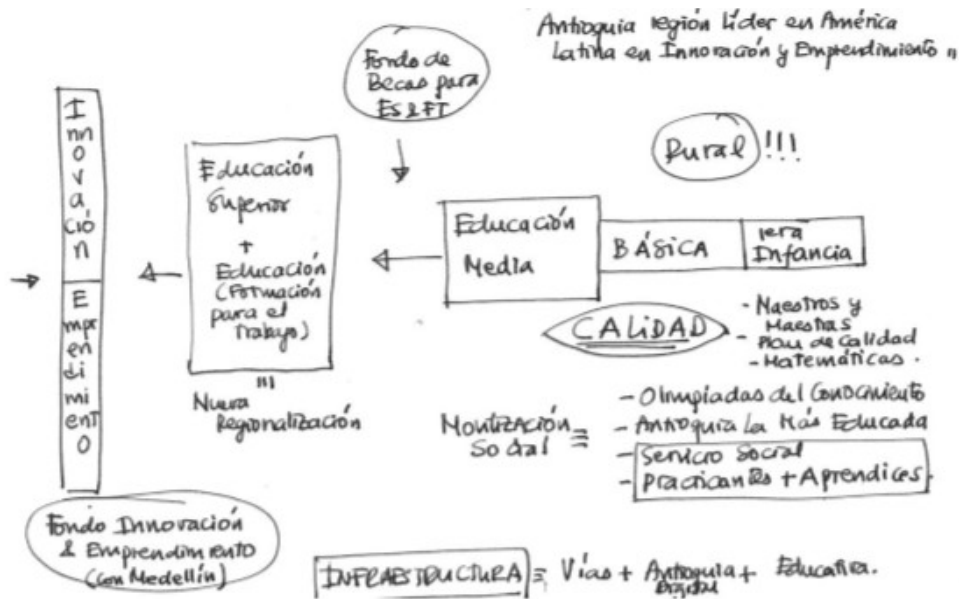 Antioquia región líder en América
Latina en Innovación y Emprendimiento
Fondo de
Becas para
ES & FT
Rural !!!
Innovación
Emprendimiento
Educación
Superior
+
Educación
(Formación
para el
Trabajo)
Nueva
Regionalización
Educación
Media
BÁSICA
1era
Infancia
CALIDAD
- Maestros y
Maestras
- Plan de Calidad
- Matemáticas.
Movilización
Social
- Olimpiadas del Conocimiento
- Antioquia La Más Educada
- Servicio Social
- Practicantes + Aprendices.
Fondo Innovación
& Emprendimiento
(con Medellín)
INFRAESTRUCTURA = Vías + Antioquia + Educativa.
Digital